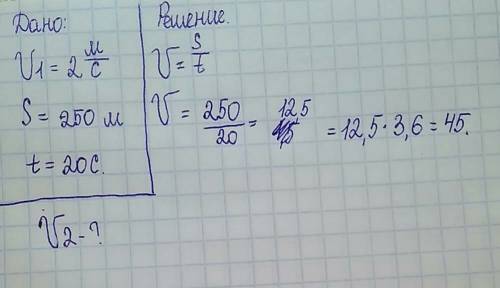 Дано:
V1 = 2 м/с
S = 250 м
t = 20 с.
V2 - ?
Решение.
V = S/t
V = 250/20 = 12,5 = 12,5 · 3,6 = 45.